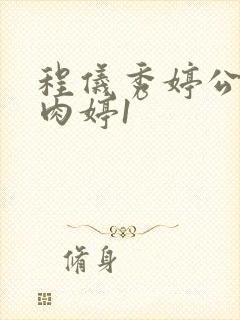 程仪秀婷公
肉婷1
脩身